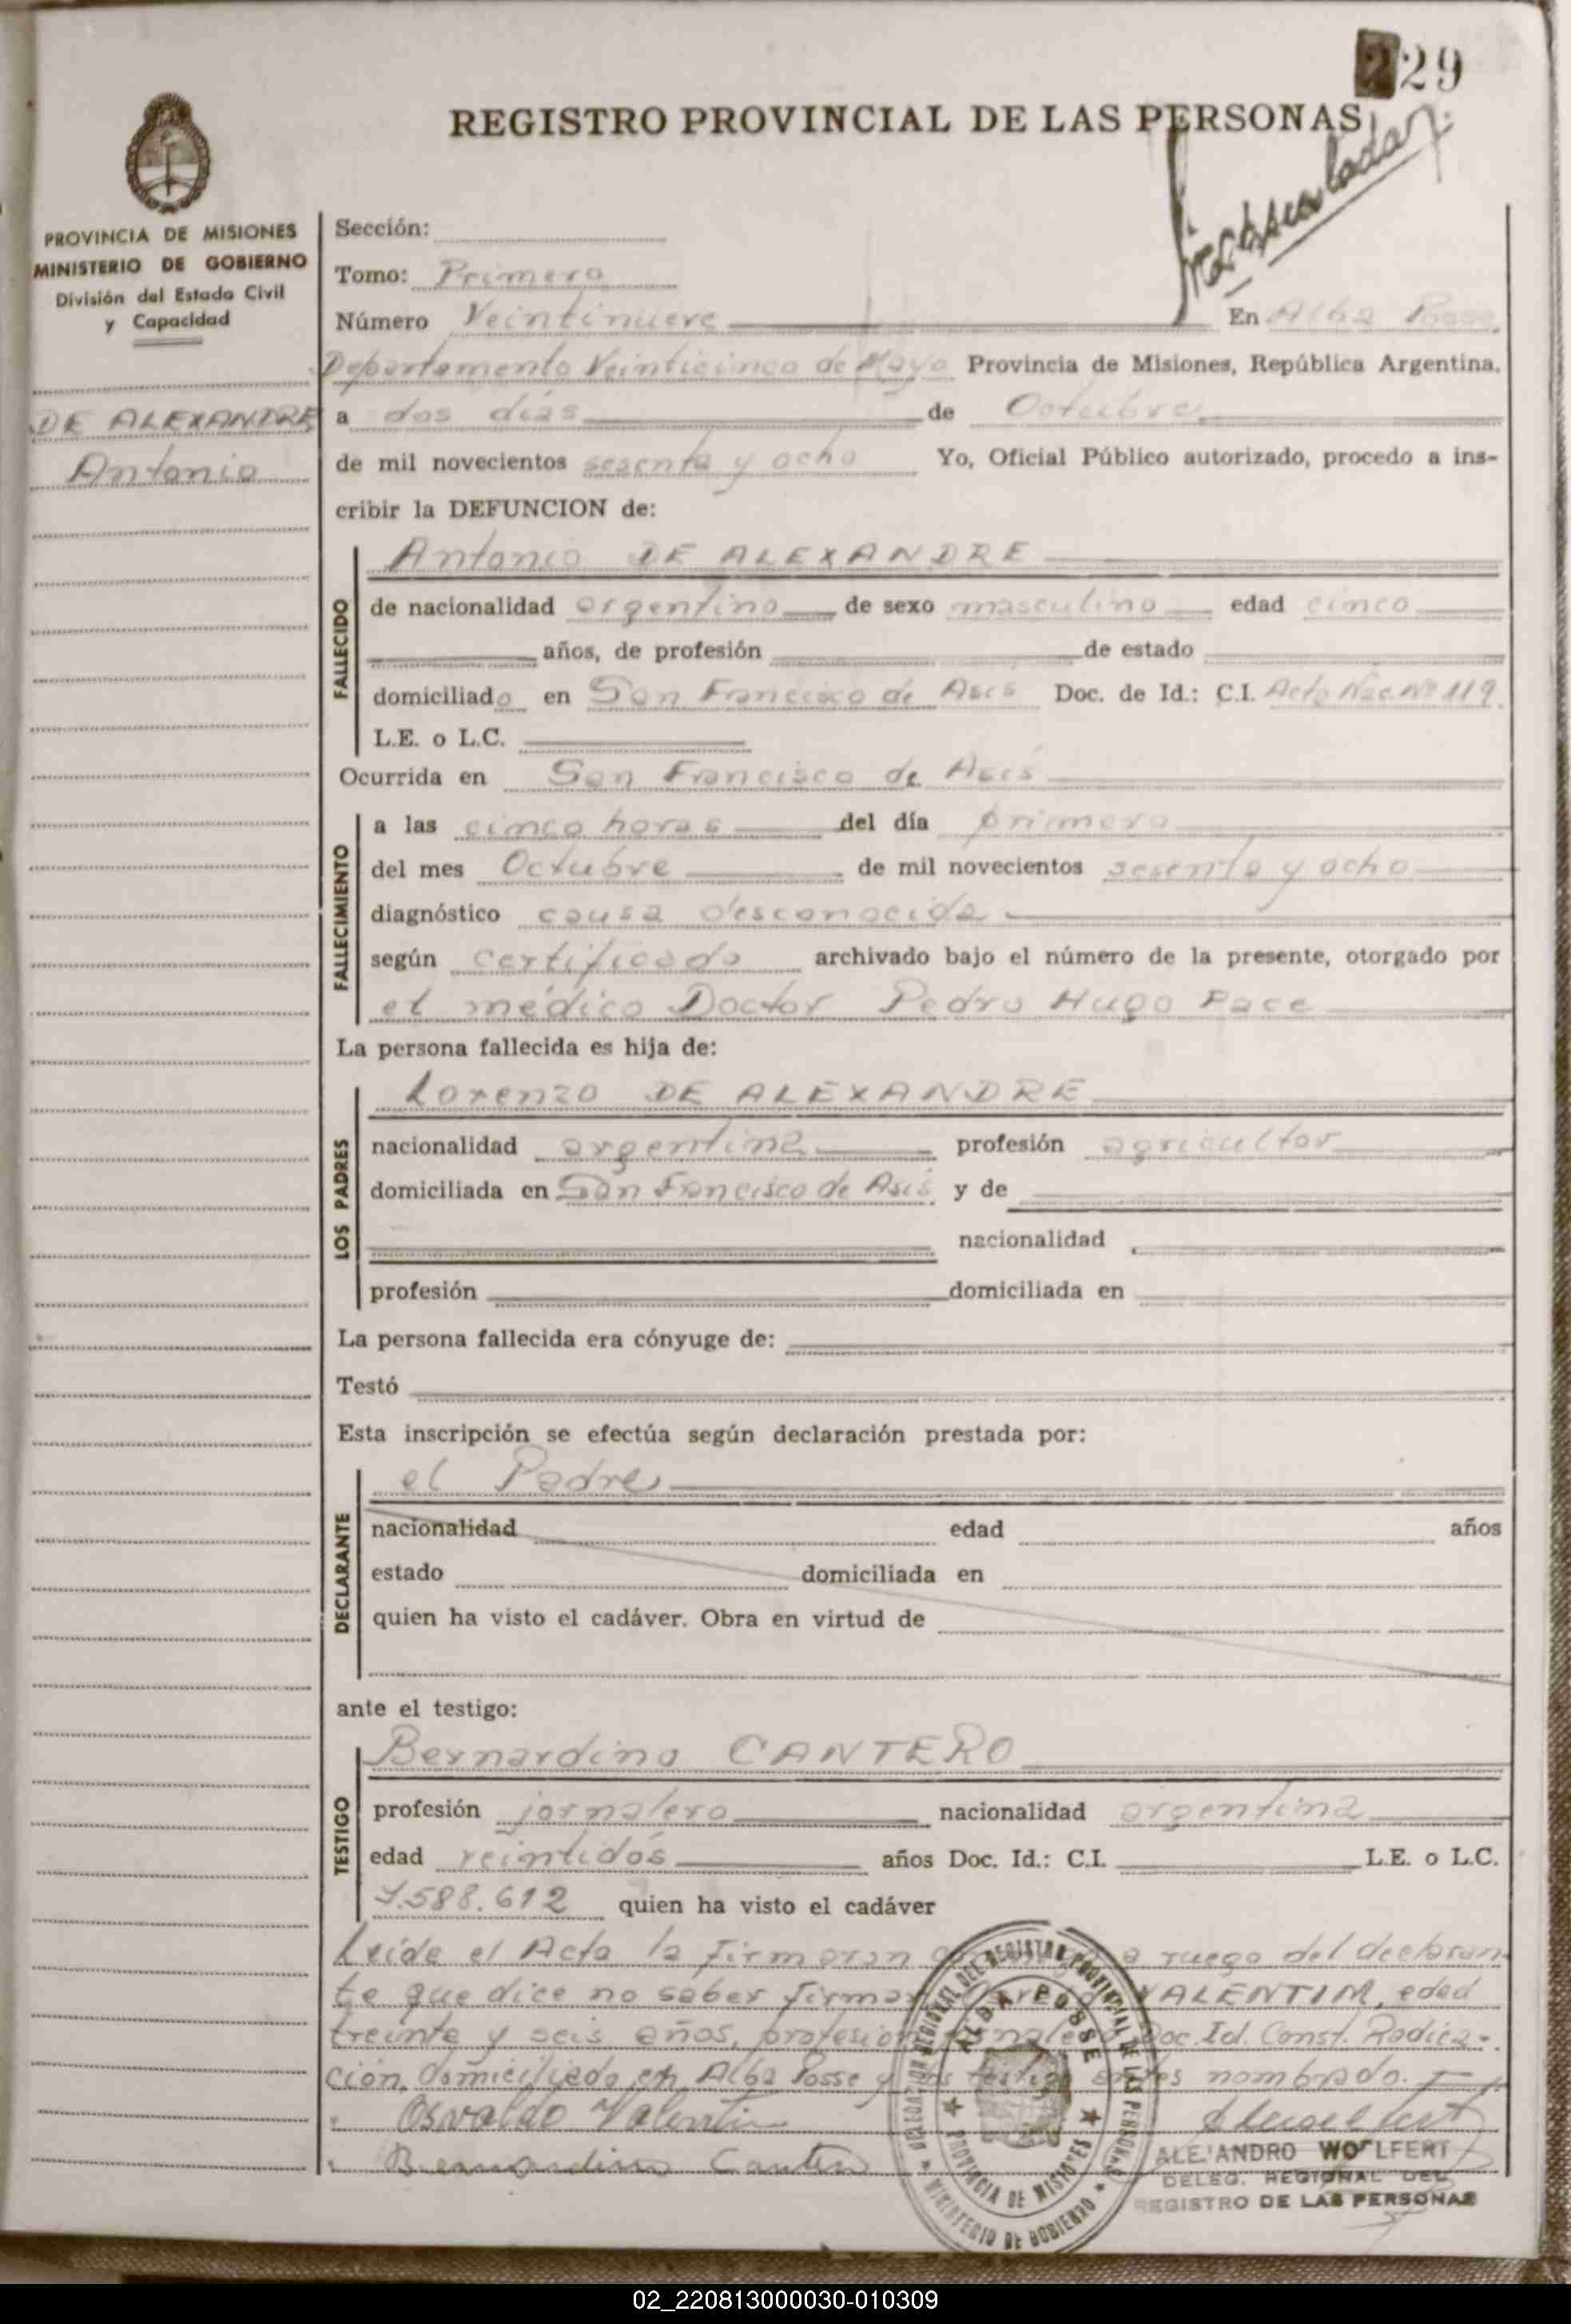 29
REGISTRO PROVINCIAL DE LAS PERSONAS
PROVINCIA DE MISIONES
MINISTERIO DE GOBIERNO
División del Estado Civil
y Capacidad
DE ALEXANDRE
Antonio
Sección:
Tomo: Primero
Número Veintinueve En Alba Posse
Departamento Veinticinco de Mayo Provincia de Misiones, República Argentina,
a dos días de Octubre
de mil novecientos sesenta y ocho Yo, Oficial Público autorizado, procedo a ins-
cribir la DEFUNCION de:
FALLECIDO
Antonio DE ALEXANDRE
de nacionalidad argentino de sexo masculino edad cinco
años, de profesión de estado
domiciliado en San Francisco de Asis Doc. de Id.: C.I. Acta Nac. Nº 119
L.E. o L.C.
Ocurrida en San Francisco de Asís
FALLECIMIENTO
a las cinco horas del día primero
del mes Octubre de mil novecientos sesenta y ocho
diagnóstico causa desconocida
según certificado archivado bajo el número de la presente, otorgado por
el médico Doctor Pedro Hugo Pace
La persona fallecida es hija de:
LOS PADRES
Lorenzo DE ALEXANDRE
nacionalidad argentina profesión agricultor
domiciliada en San Francisco de Asis y de
nacionalidad
profesión domiciliada en
La persona fallecida era cónyuge de:
Testó
Esta inscripción se efectúa según declaración prestada por:
DECLARANTE
el Padre
nacionalidad edad años
estado domiciliada en
quien ha visto el cadáver. Obra en virtud de
ante el testigo:
TESTIGO
Bernardino CANTERO
profesión jornalero nacionalidad argentina
edad veintidós años Doc. Id.: C.I. L.E. o L.C.
7.588.612 quien ha visto el cadáver
Leída el Acta la firmaron a ruego del declaran-
te que dice no saber firmar VALENTIM, edad
treinta y seis años, profesion jornalero Doc. Id. Const. Radica-
ción, domiciliado en Alba Posse y los testigo antes nombrado.
Osvaldo Valentin
Bernardino Cantero
DELEGACION REGIONAL DEL REGISTRO PROVINCIAL DE LAS PERSONAS
ALBA POSSE
PROVINCIA DE MISIONES
MINISTERIO DE GOBIERNO
ALEJANDRO WOLFERT
DELEG. REGIONAL DEL
REGISTRO DE LAS PERSONAS
02_220813000030-010309